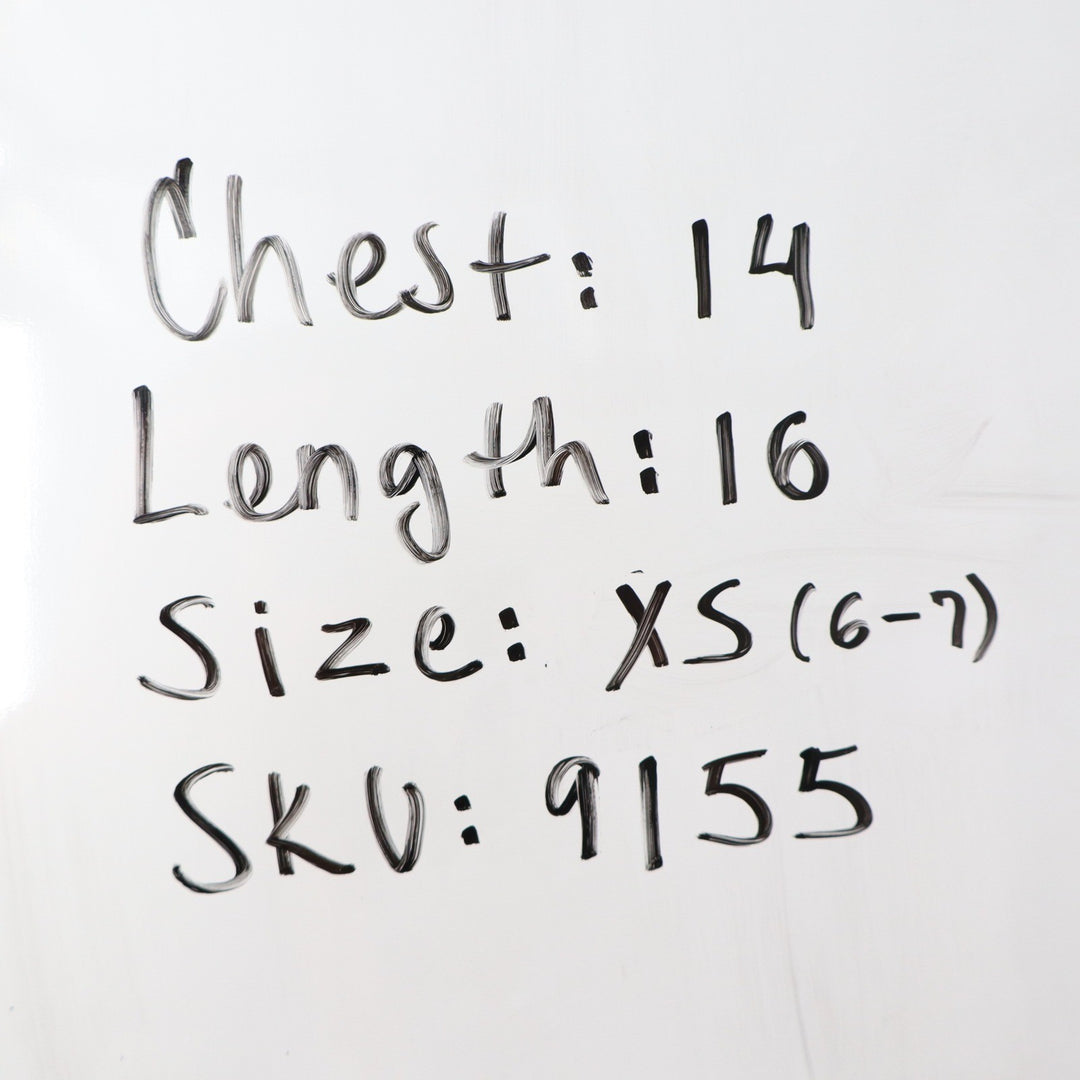 Chest: 14
Length: 16
Size: XS (6-7)
SKU: 9155